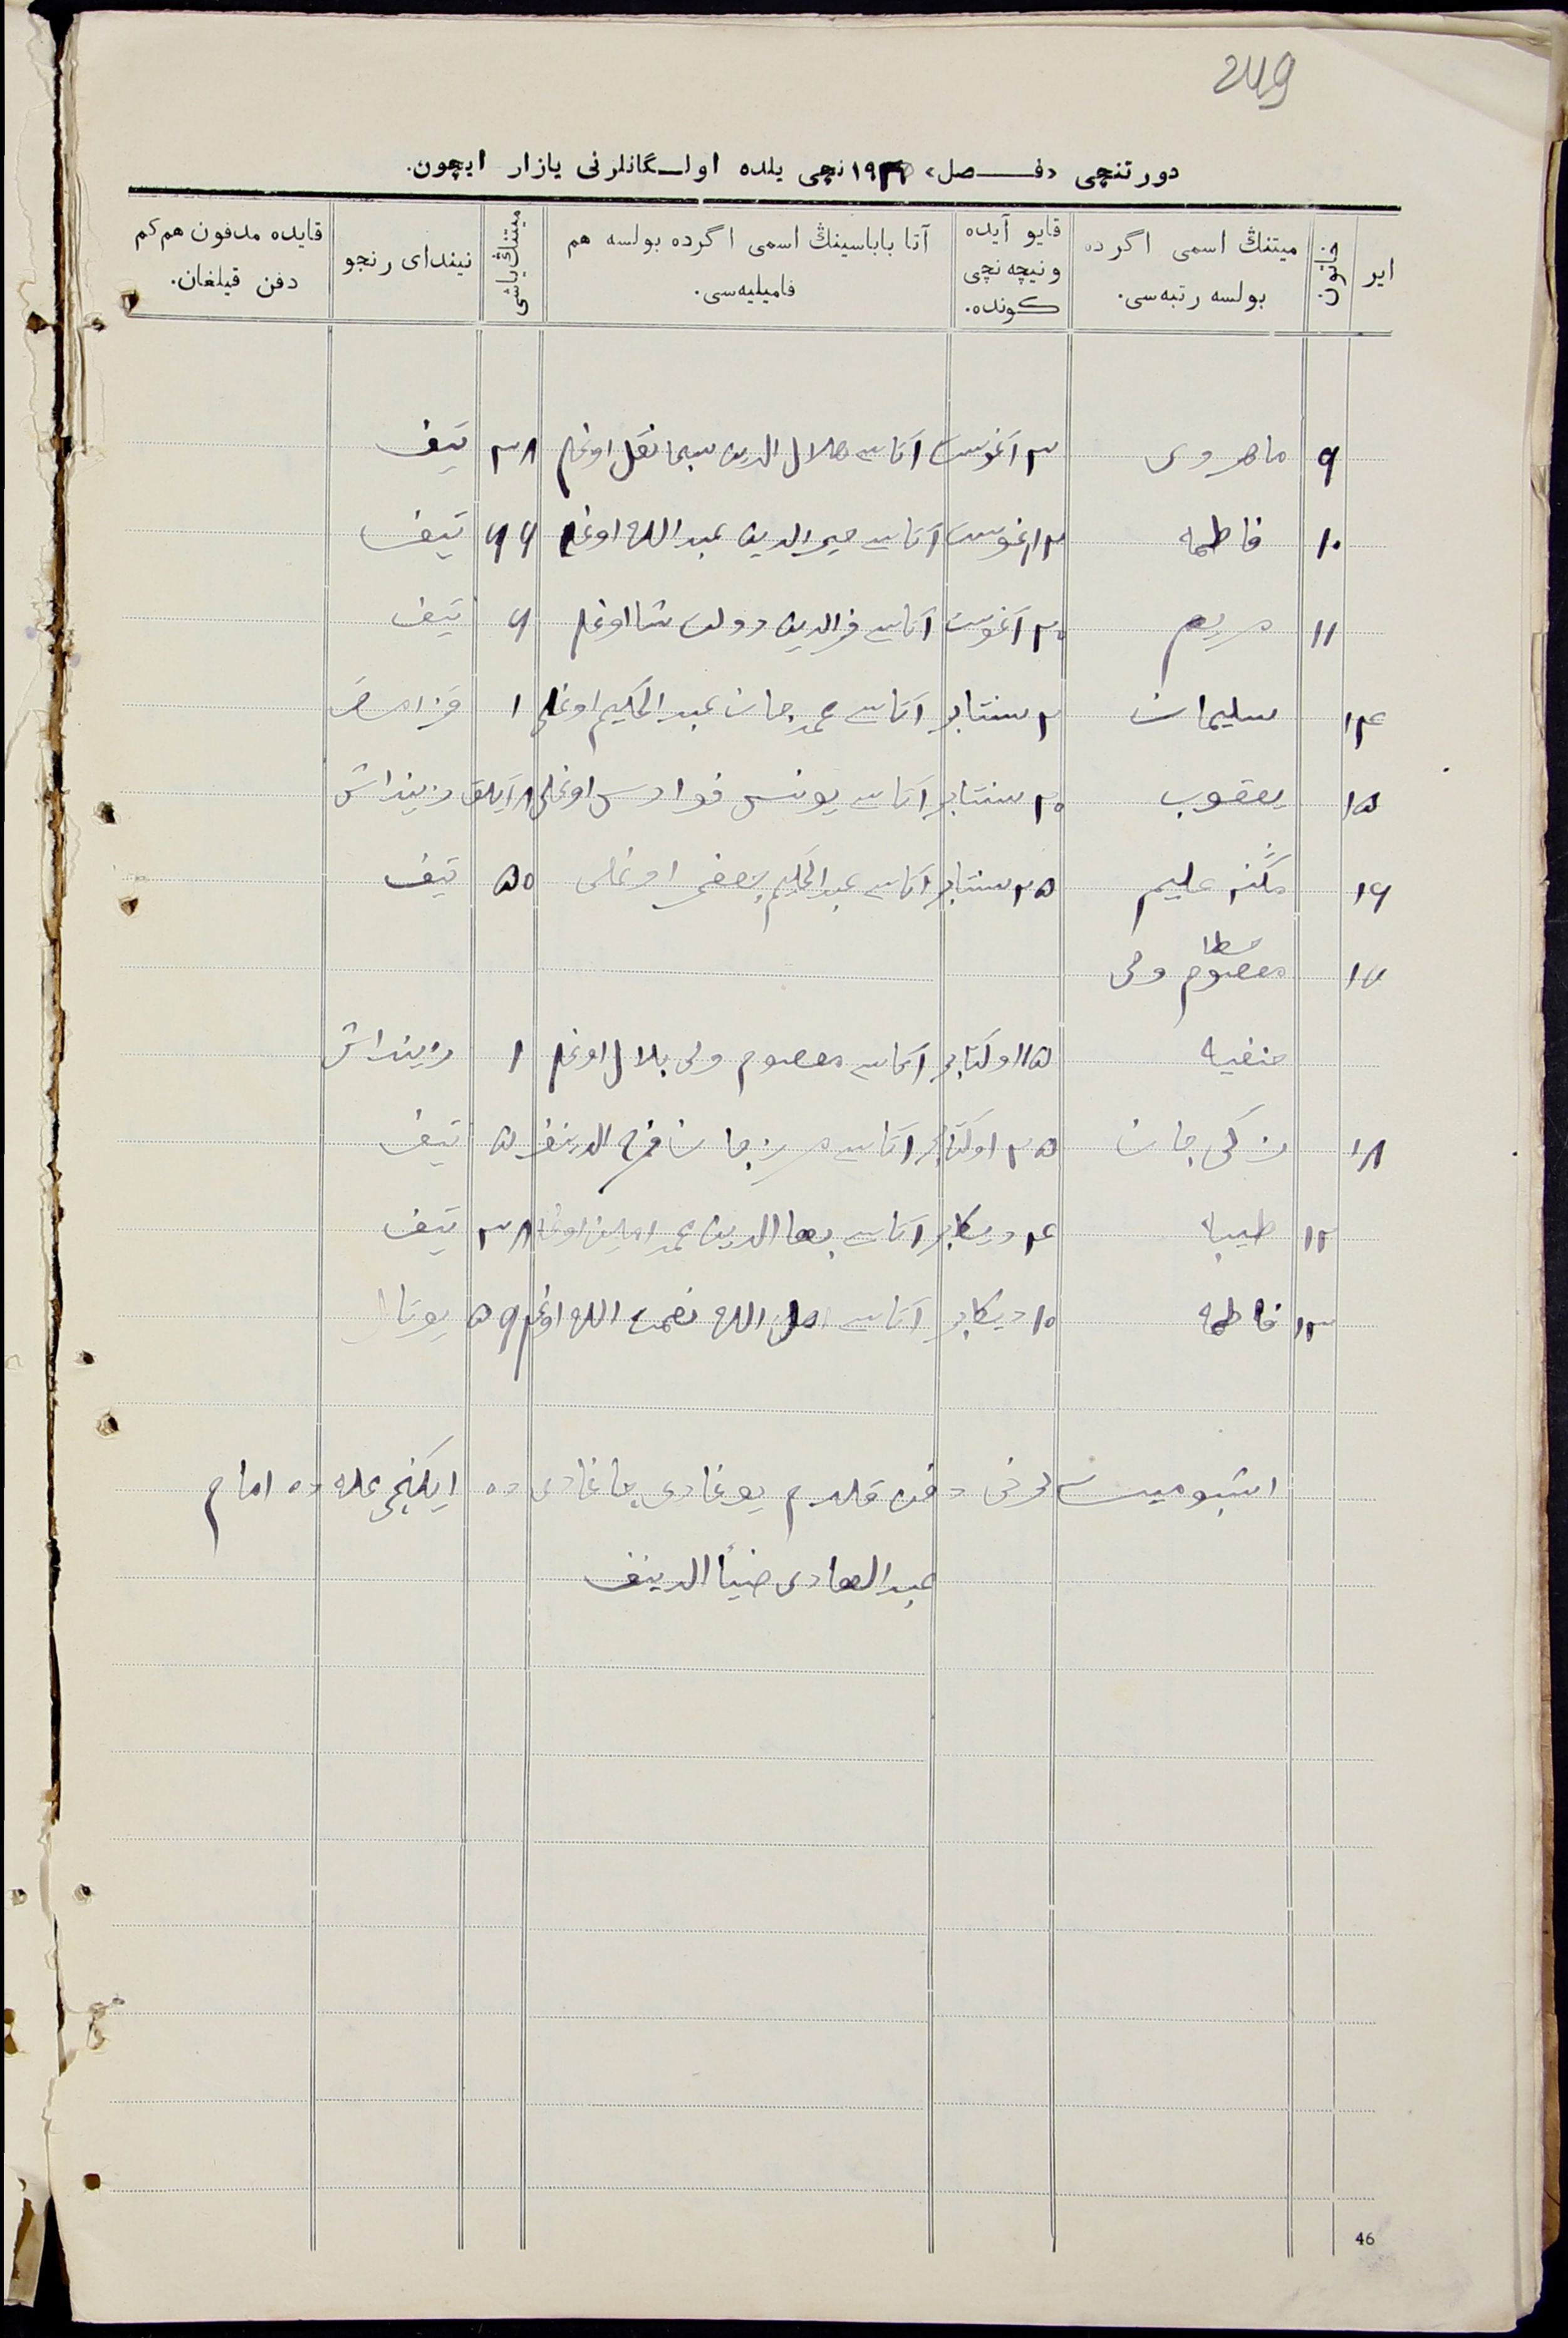 249
دورتنچی «فـصل» ١٩٢ نچی یلده اولـگانلرنی یازار ایچون.
ایر | خاتون | میتنڭ اسمی اگرده بولسه رتبه‌سی. | قایو آیده ونیچه نچی كونده. | آتا باباسینڭ اسمی اگرده بولسه هم فامیلیه‌سی. | میتنڭ یاشی | نیندای رنجو | قایده مدفون هم كم دفن قیلغان.
٩ ماهروی ٣ آغوست آتاسی جلال الدین اوغلی ٣٨ تیف
١٠ فاطمه ١٢ اغوست آتاسی خیر الدین عبد الله اوغلی ٦٦ تیف
١١ مریم ٢٠ آغوست آتاسی فخر الدین دولت شا اوغلی ٦ تیف
١٤ سلیمان ٢ سنتابر آتاسی محمد جان عبد الحكیم اوغلی ١
١٥ یعقوب ٢٠ سنتابر آتاسی یونس اوغلی ٨ آیلق دزینداش
١٦ علیم ٢٥ سنتابر آتاسی عبد الحكیم جعفر اوغلی ٥٥ تیف
خطا
١٧ معصوم ولی
حنفیه ١٥ اوكتابر آتاسی معصوم ولی بلال اوغلی ١ دزینداش
١٨ زكی جان ٢٥ اوكتابر آتاسی میرزجان فخر الدینف ٥ تیف
١٢ طیبا ٤ دیكابر آتاسی بها الدین محمد امین اوغلی ٣٨ تیف
١٣ فاطمه ١٠ دیكابر آتاسی الله نعمت الله اوغلی ٥٩
اشبو میت لرنی دفن قلدم یوغاری چاغادی ده ایكنچی محله ده امام
عبد الهادی ضیأ الدینف
46